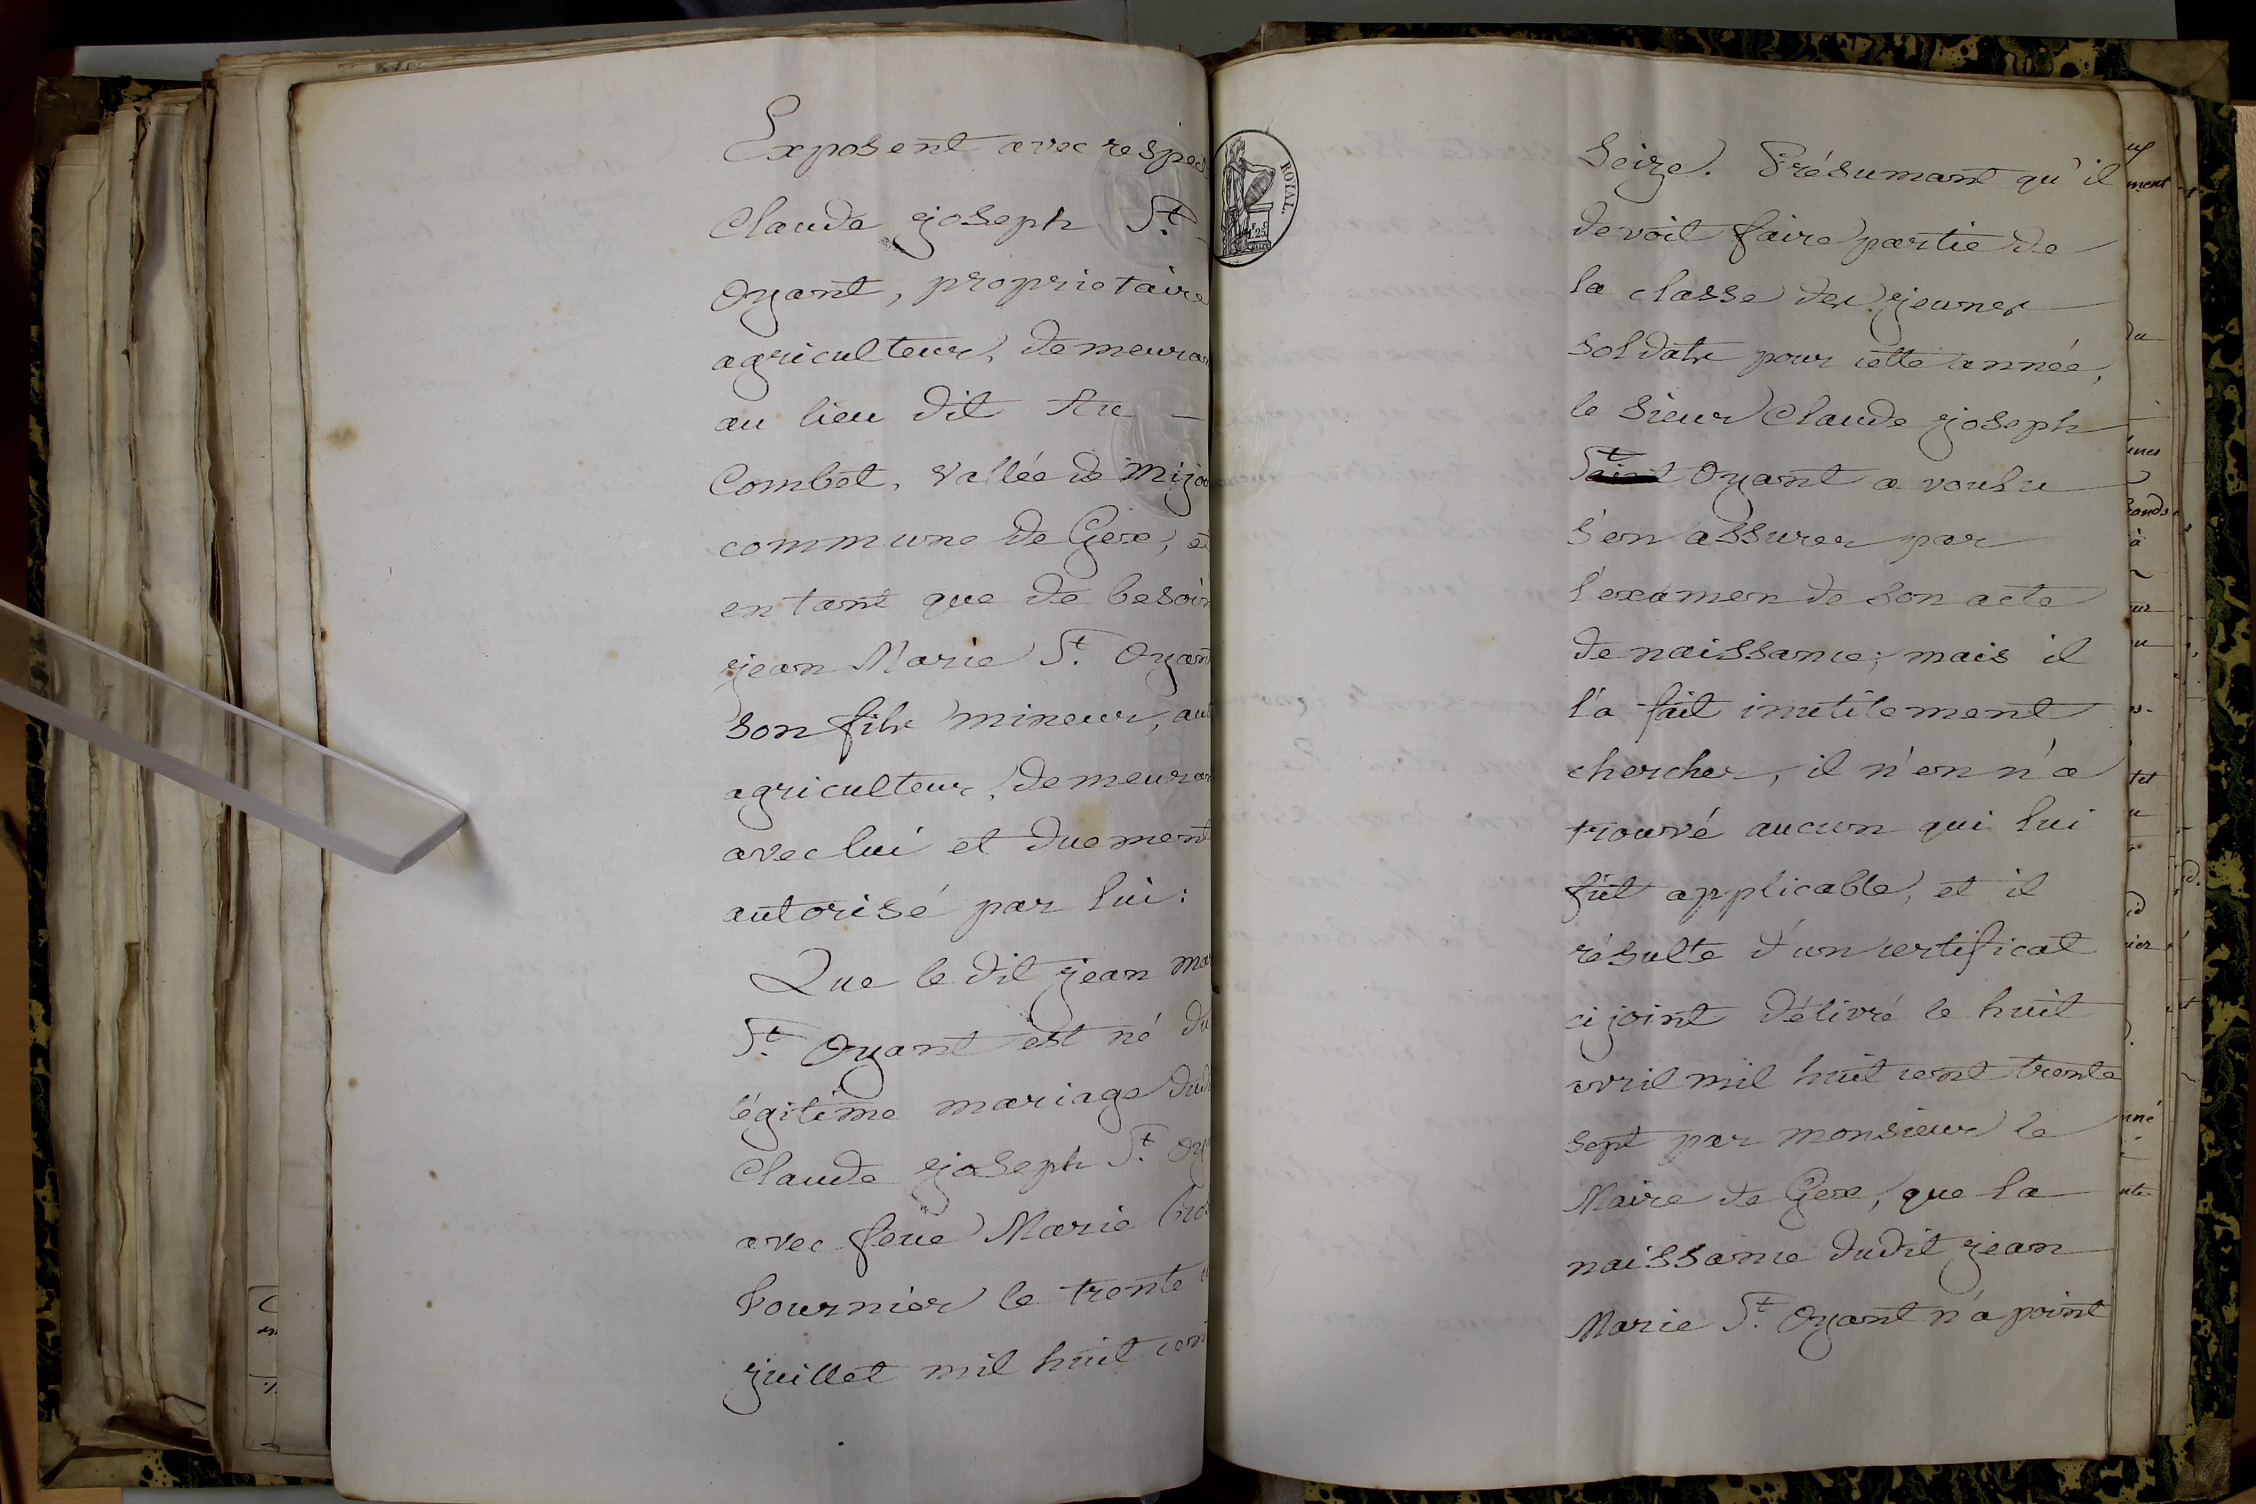 Exposent avec respec
Claude joseph St.
Oyant, proprietaire
agriculteur, demeuran
au lieu dit Au —
Combet, vallée de Mijou
commune de Gex, et
en tant que de besoin
jean Marie St. Oyant
son fils mineur, aut
agriculteur, demeuran
avec lui et duement
autorisé par lui:
Que le dit jean mar
St. Oyant est né du
légitime mariage dud
Claude joseph St. Oy
avec feue Marie
Fournier le trente
juillet mil huit cent
ROYAL.
seize. Présumant qu'il
devoit faire partie de
la classe des jeunes
soldats pour cette année,
le sieur Claude joseph
St Oyant a voulu
s'en assurer par
l'examen de son acte
de naissance; mais il
l'a fait inutilement
chercher, il n'en n'a
trouvé aucun qui lui
fût applicable, et il
résulte d'un certificat
ci joint délivré le huit
avril mil huit cent trente
sept par monsieur le
Maire de Gex, que la
naissance dudit jean
Marie St. Oyant n'a point